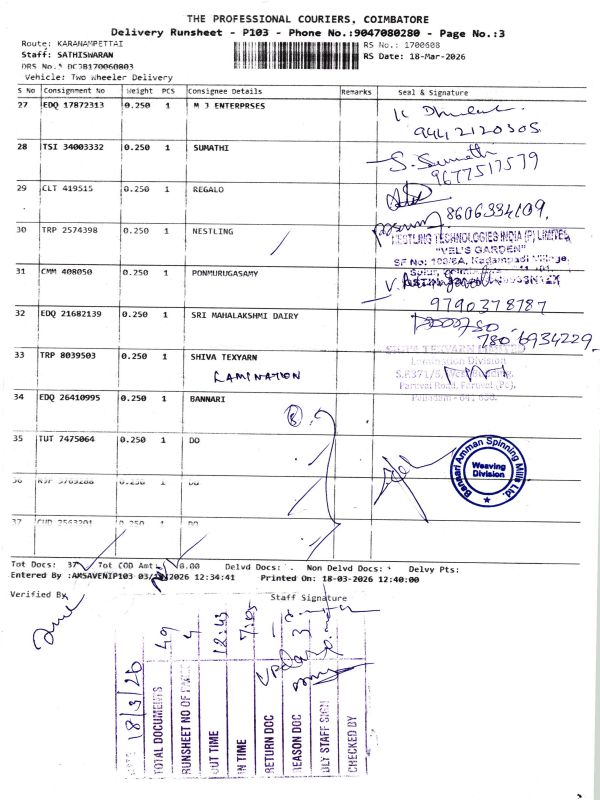 THE PROFESSIONAL COURIERS, COIMBATORE
Delivery Runsheet - P103 - Phone No.:9047080280 - Page No.:3
Route: KARANAMPETTAI
RS No.: 1700608
Staff: SATHISWARAN
RS Date: 18-Mar-2026
DRS No.: DCJB170060803
Vehicle: Two Wheeler Delivery
S No Consignment No Weight PCS Consignee Details Remarks Seal & Signature
27 EDQ 17872313 0.250 1 M J ENTERPRSES
9442120305
28 TSI 34003332 0.250 1 SUMATHI
S. Sumathi
9677517579
29 CLT 419515 0.250 1 REGALO
8606334109
30 TRP 2574398 0.250 1 NESTLING
NESTLING TECHNOLOGIES INDIA (P) LIMITED
"VEL'S GARDEN"
31 CMM 408050 0.250 1 PONMURUGASAMY
9790378787
32 EDQ 21682139 0.250 1 SRI MAHALAKSHMI DAIRY
7806934229
33 TRP 8039503 0.250 1 SHIVA TEXYARN
LAMINATION
Lamination Division
34 EDQ 26410995 0.250 1 BANNARI
35 TUT 7475064 0.250 1 DO
Bannari Amman Spinning Mills Ltd.
Weaving Division
36 0.250 1 DO
37 0.250 1 DO
Tot Docs: 37 Tot COD Amt: 0.00 Delvd Docs: Non Delvd Docs: Delvy Pts:
Entered By :AMSAVENIP103 2026 12:34:41 Printed On: 18-03-2026 12:40:00
Verified By
Staff Signature
18/3/26
TOTAL DOCUMENTS 49
RUNSHEET NO OF 4
OUT TIME 12:45
IN TIME 7:05
RETURN DOC
REASON DOC
DLY STAFF SIGN
CHECKED BY